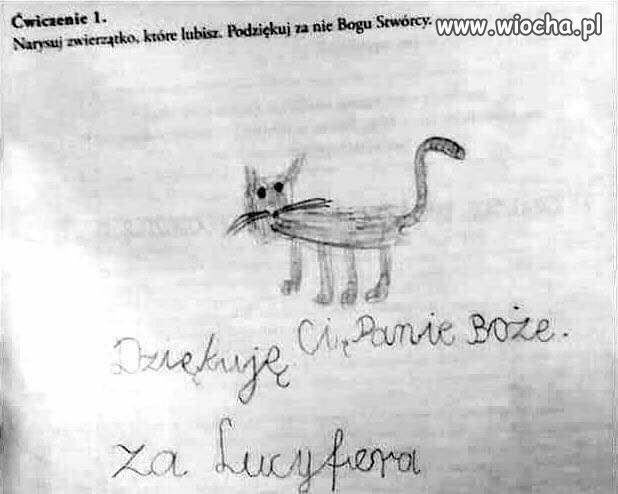 Ćwiczenie 1.
Narysuj zwierzątko, które lubisz. Podziękuj za nie Bogu Stwórcy.
www.wiocha.pl
Dziękuję Ci, Panie Boże.
za Lucyfera